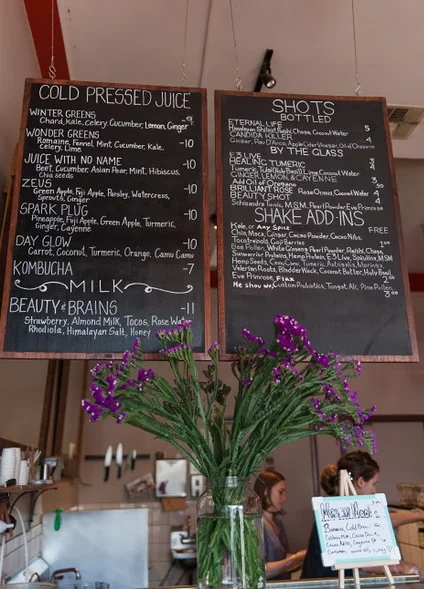 COLD PRESSED JUICE
WINTER GREENS
Chard, Kale, Celery, Cucumber, Lemon, Ginger -9
WONDER GREENS -10
Romaine, Fennel, Mint, Cucumber, Kale,
Celery, Lime
JUICE WITH NO NAME -10
Beet, Cucumber, Asian Pear, Mint, Hibiscus,
Chia seeds
ZEUS -10
Green Apple, Fuji Apple, Parsley, Watercress,
Sprouts, Ginger
SPARK PLUG -10
Pineapple, Fuji Apple, Green Apple, Turmeric,
Ginger, Cayenne
DAY GLOW -10
Carrot, Coconut, Turmeric, Orange, Camu Camu
KOMBUCHA -7
MILK
BEAUTY & BRAINS -11
Strawberry, Almond Milk, Tocos, Rose Water
Rhodiola, Himalayan Salt, Honey
SHOTS
BOTTLED
ETERNAL LIFE 5
Himalayan Shilajit, Reishi, Chaga, Coconut Water
CANDIDA KILLER 4
Ginger, Pau D'Arco, Apple Cider Vinegar, Oil of Oregano
BY THE GLASS
E3 LIVE
HEALING TURMERIC
GINGER, LEMON & CAYENNE
Add Oil of Oregano
BRILLIANT ROSE Rose, Ormus, Coconut Water 4
BEAUTY SHOT
Schisandra Tonic, M.S.M, Pearl Powder, Eve Primrose
SHAKE ADD INS
Kale, or Any Spice FREE
Chia, Maca, Ginger, Cacao Powder, Cacao Nibs,
Tocotrienols, Goji Berries 1.00
Bee Pollen, White Ginseng, Pearl Powder, Reishi, Chaga,
Sunwarrior Protein, Hemp Protein, E3 Live, Spirulina, MSM
Hemp Seeds, Camu Camu, Tumeric, Astragalus, Moringa
Valerian Roots, Bladder Wrack, Coconut Butter, Holy Basil
Eve Primrose, Flax 2.00
He shou wu, Custom Probiotics, Tongat Ali, Pine Pollen
3.00